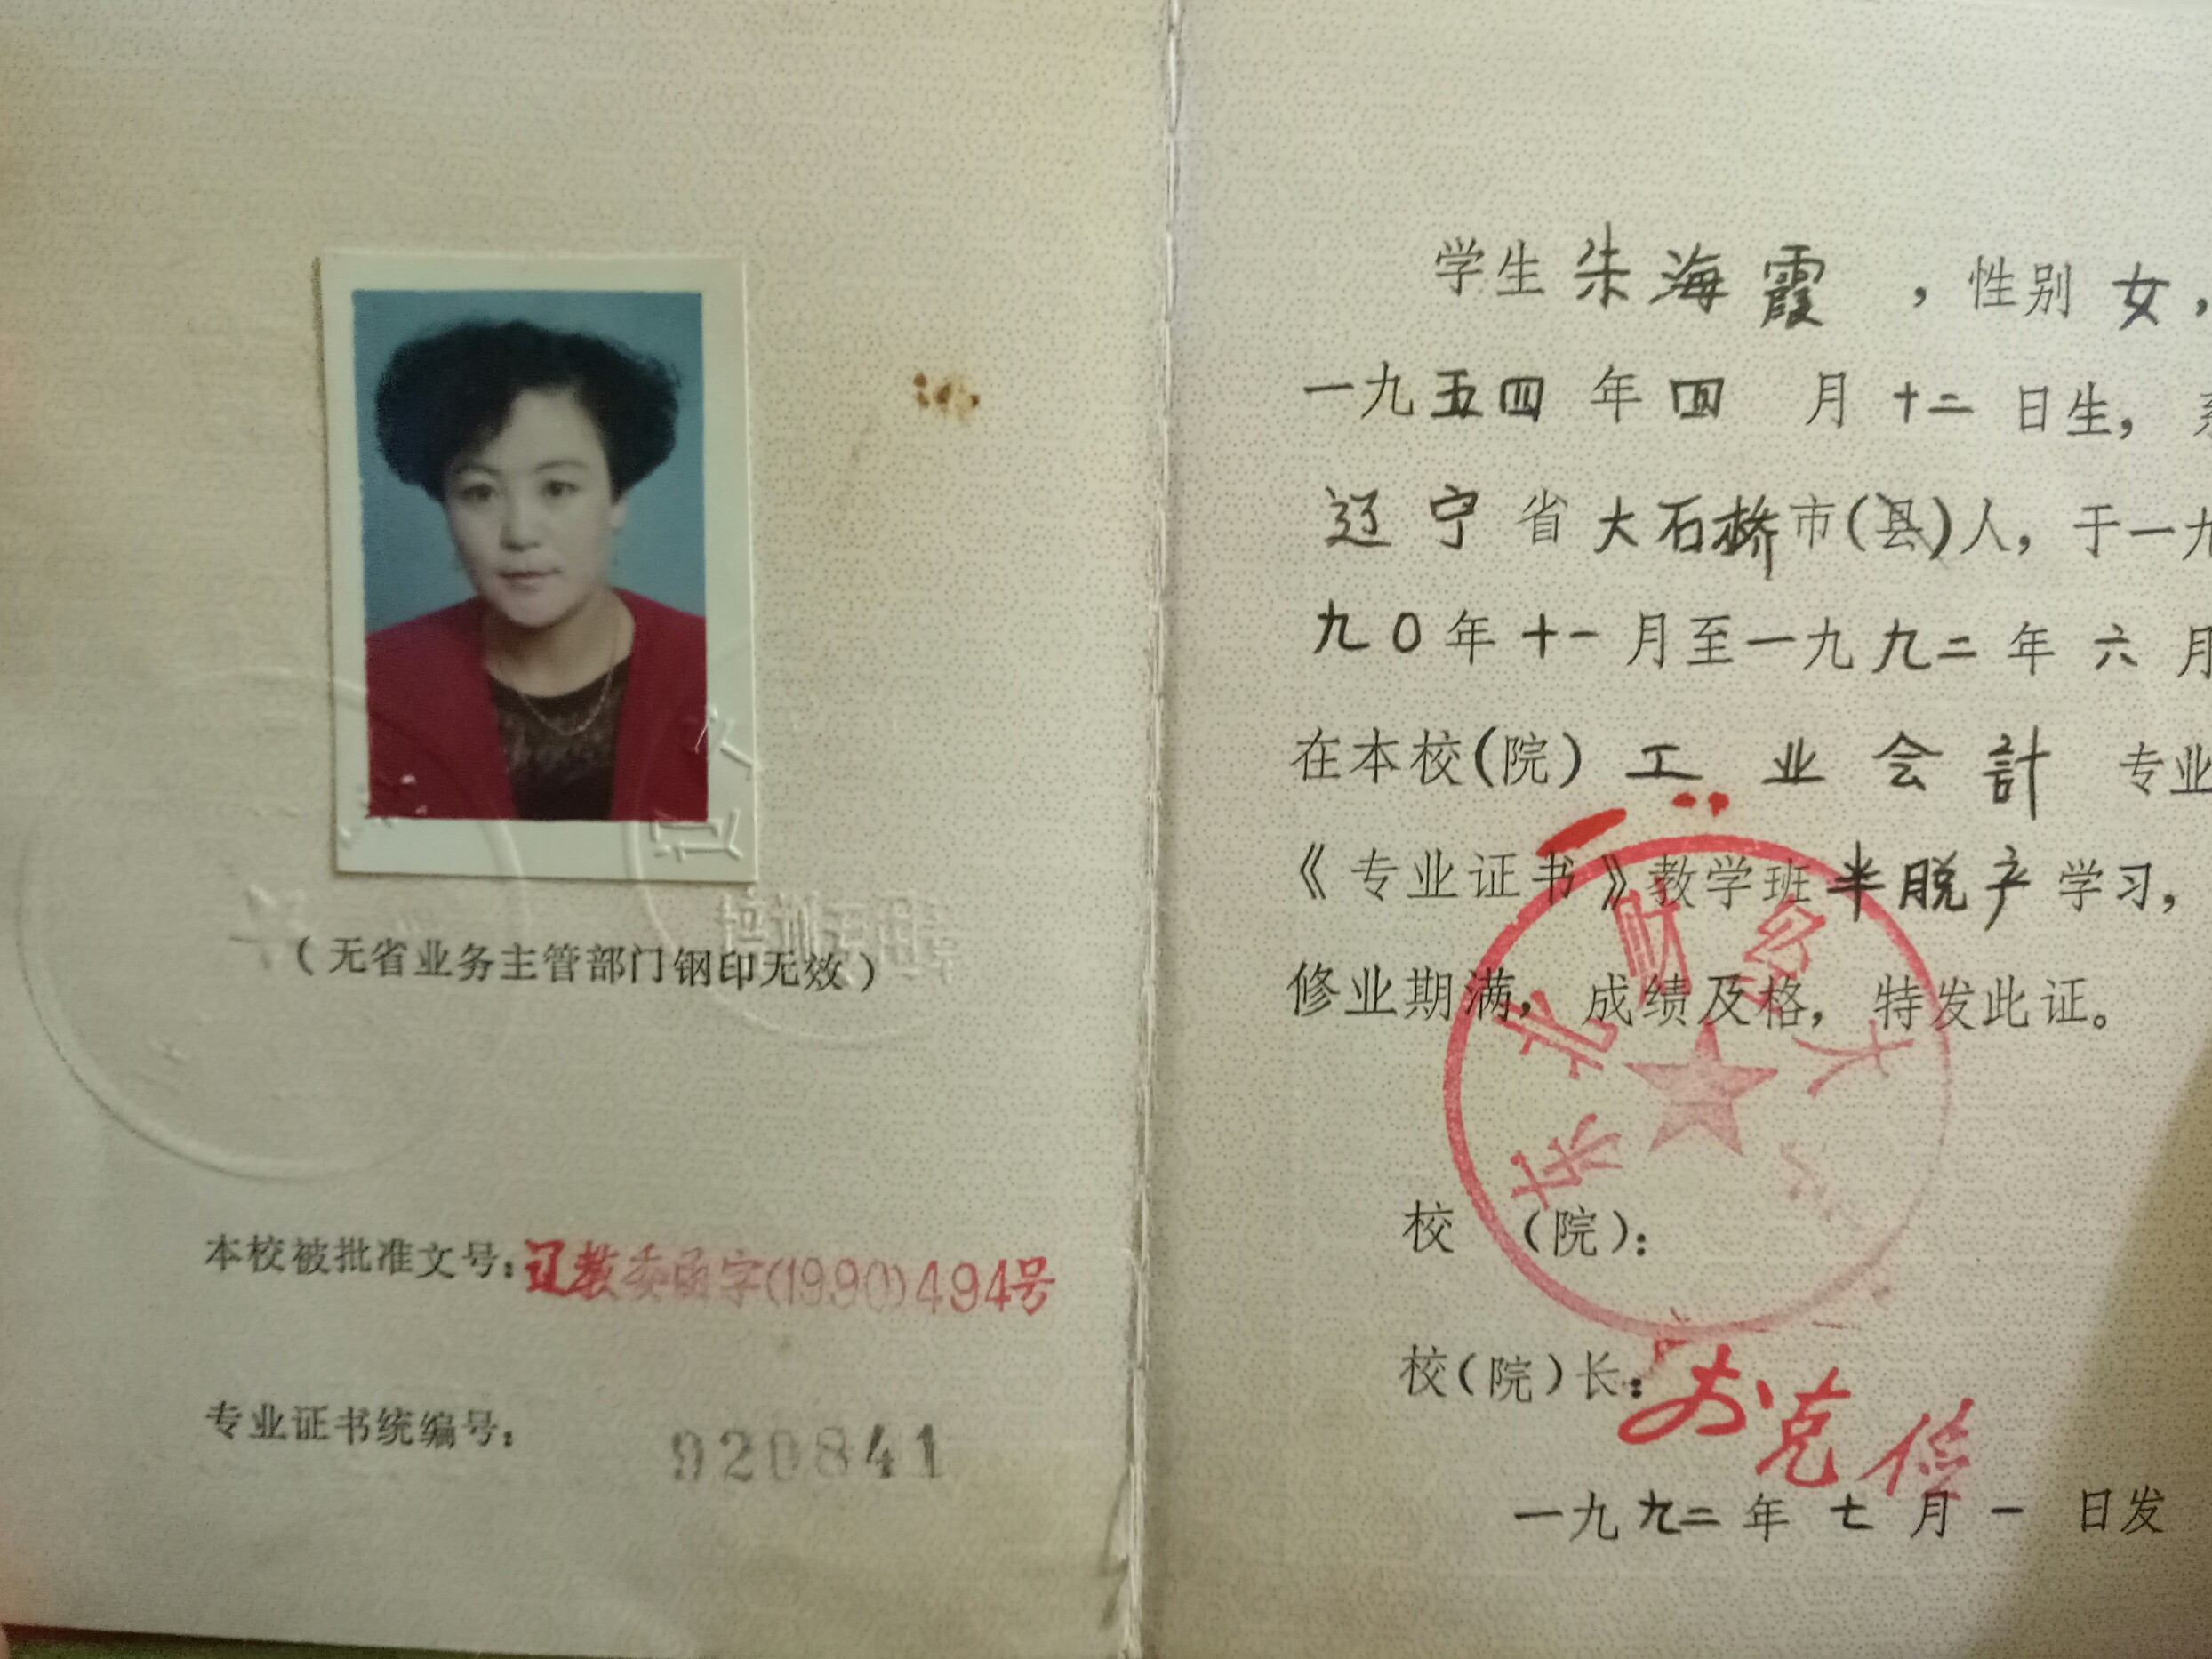 （无省业务主管部门钢印无效）
本校被批准文号：辽教委函字(1990)494号
专业证书统编号：
920841
培训专用章
学生朱海霞，性别女，
一九五四年四月十二日生，
辽宁省大石桥市(县)人，于一九
九0年十一月至一九九二年六月
在本校(院)工业会計专业
《专业证书》教学班半脱产学习，
修业期满，成绩及格，特发此证。
东北财经大
校（院）：
校(院)长：
一九九二年七月一日发